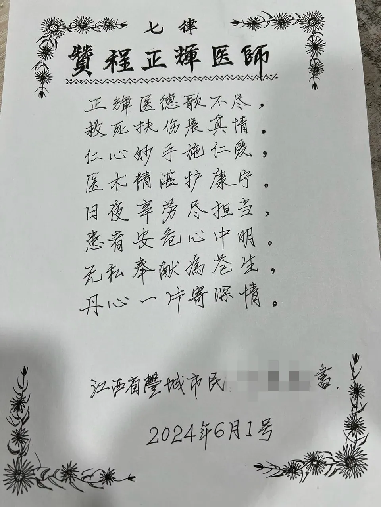 七律
赞程正辉医师
正辉医德歌不尽，
救死扶伤展真情。
仁心妙手施仁爱，
医术精湛护康宁。
日夜辛劳尽担当，
患者安危心中明。
无私奉献为苍生，
丹心一片寄深情。
江西省丰城市民 书
2024年6月1号